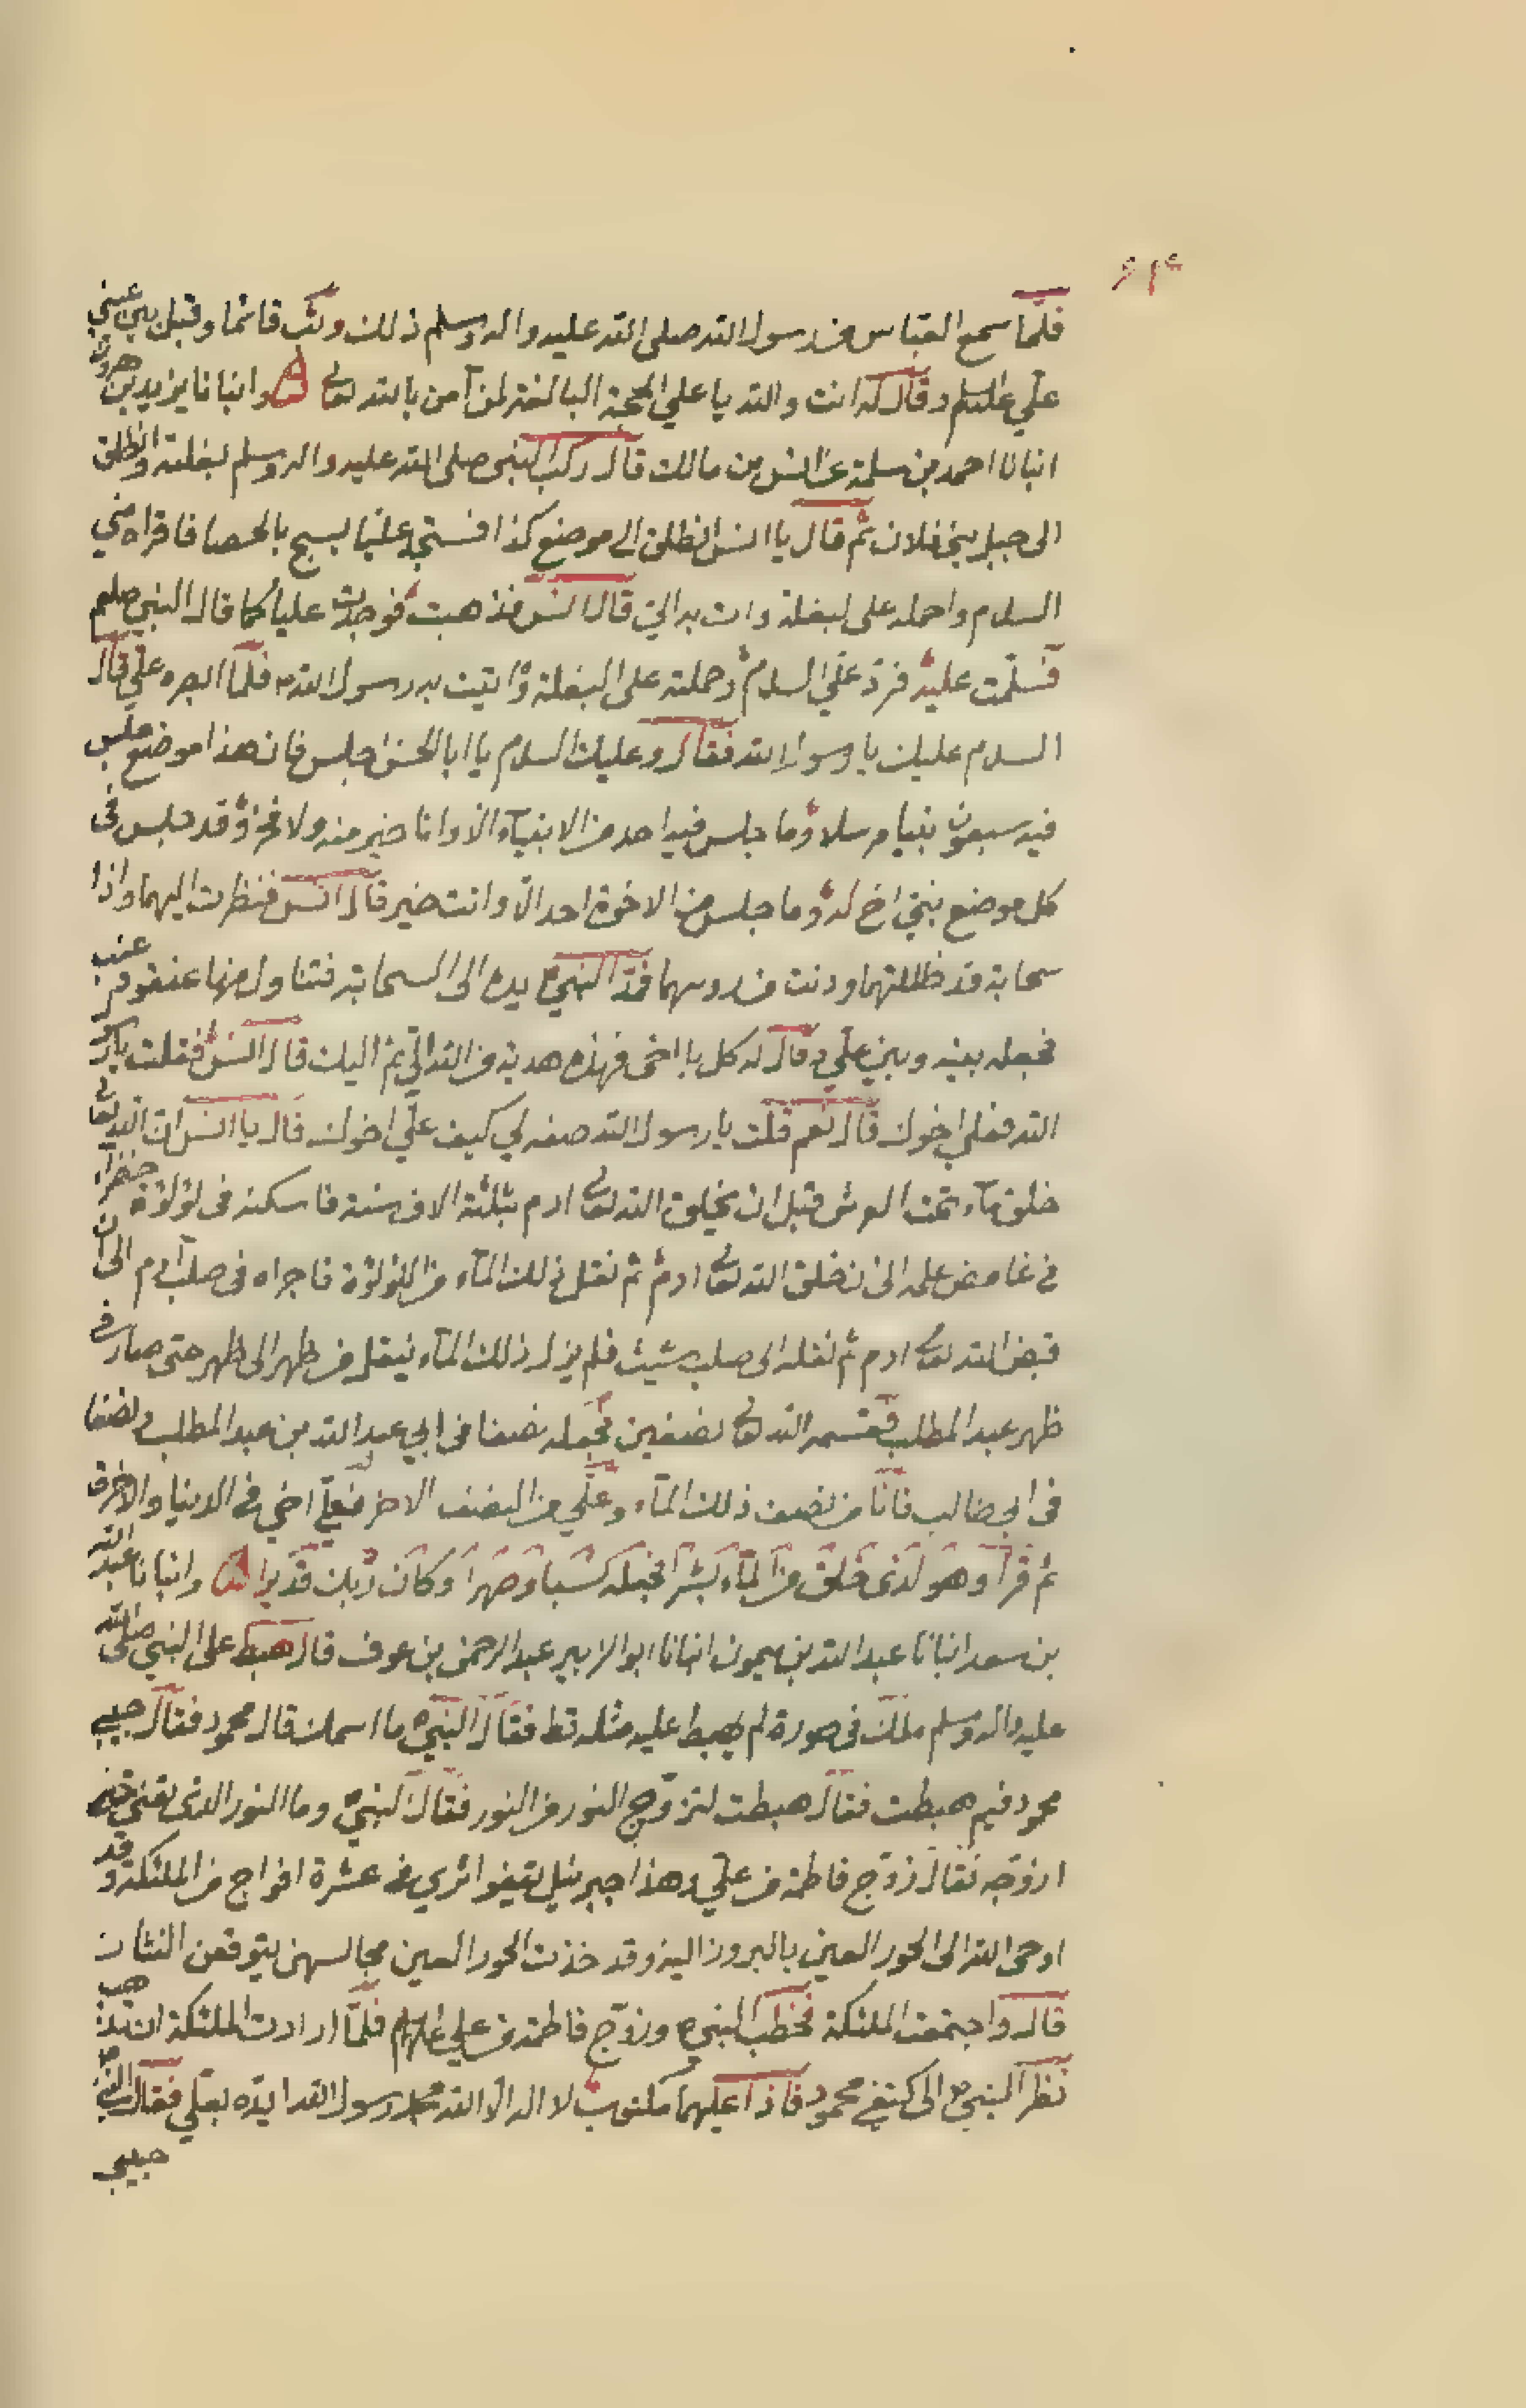 فلما سمع العباس من رسول الله صلى الله عليه واله وسلم ذلك وثب قائما وقبل بين عيني
علي عليه السلم وقال له انت والله يا علي الحجة البالغة لمن آمن بالله تعالى وانبانا يزيد بن هرون
انبانا احمد بن سلمة عن انس بن مالك قال ركب النبي صلى الله عليه واله وسلم بغلته وانطلق
الى جبل بني فلان ثم قال يا انس انطلق الى موضع كذا فستجد عليا يسبح بالحصا فاقراه مني
السلام واحمله على البغلة وات به الي قال انس فذهبت فوجدت عليا كما قال النبي صلعم
فسلمت عليه فرد علي السلام وحملته على البغلة واتيت به رسول الله فلما ابصره علي قال
السلام عليك يا رسول الله فقال وعليك السلام يا ابا الحسن اجلس فان هذا موضع جلس
فيه سبعون نبيا مرسلا وما جلس فيه احد من الانبياء الا وانا خير منه ولا فخر وقد جلس في
كل موضع نبي اخ له وما جلس من الاخوة احد الا وانت خير قال انس فنظرت اليهما واذا
سحابة قد ظللتهما ودنت من روسهما فمد النبي يده الى السحابة فتناول منها عنقود عنب
فجعله بينه وبين علي وقال له كل يا اخي فهذه هدية من الله الي ثم اليك قال انس فقلت يا رسول
الله فعلي اخوك قال نعم قلت يا رسول الله صفه لي كيف علي اخوك قال يا انس ان الله تعالى
خلق ماء تحت العرش قبل ان يخلق الله تعالى ادم بثلثة الاف سنة فاسكنه في لؤلؤة خضراء
في غامض علمه الى ان خلق الله تعالى ادم ثم نقل ذلك الماء من اللؤلؤة فاجراه في صلب آدم الى ان
قبض الله تعالى ادم ثم نقله الى صلب شيث فلم يزل ذلك الماء ينقل من ظهر الى ظهر حتى صار في
ظهر عبد المطلب فقسمه الله تعالى نصفين فجعله نصفا في ابي عبد الله بن عبد المطلب ونصفا
في ابي طالب فانا من نصف ذلك الماء وعلي من النصف الاخر فعلي اخي في الدنيا والاخرة
ثم قرا وهو الذي خلق من الماء بشرا فجعله نسبا وصهرا وكان ربك قديرا وانبانا عبد الله
بن سعد انبانا عبد الله بن ميمون انبانا ابو الزبير عبد الرحمن بن عوف قال هبط على النبي صلى الله
عليه واله وسلم ملك في صورة لم يهبط عليه مثله قط فقال النبي ما اسمك قال محمود فقال حبيبي
محمود فيم هبطت فقال هبطت لتزوج النور من النور فقال النبي وما النور الذي
ازوجه فقال زوج فاطمة من علي وهذا جبرئيل يقفو اثري في عشرة افواج من الملئكة وقد
اوحى الله الى الحور العين بالبروز اليه وقد خذت الحور العين مجالسهن يتوقعن النثار
قال واجتمعت الملئكة فخطب النبي وزوج فاطمة من علي عليهم السلام فلما ارادت الملئكة ان تذهب
نظر النبي الى كتفي محمود فاذا عليهما مكتوب لا اله الا الله محمد رسول الله ايده بعلي فقال النبي
حبيبي